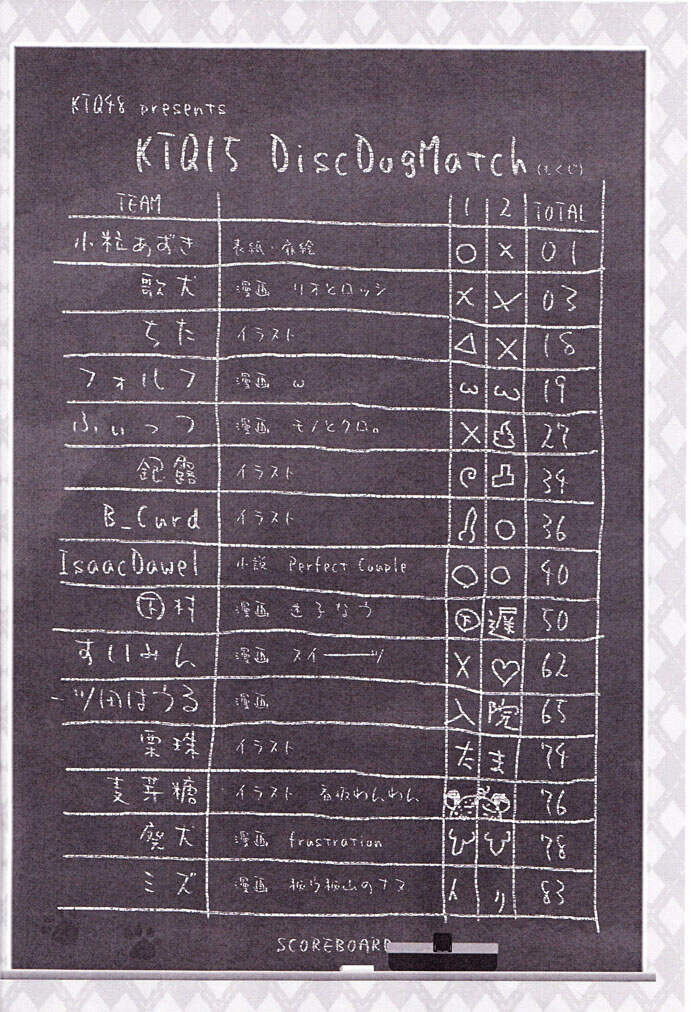 KTQ48 presents
KTQ15 DiscDogMatch (もくじ)
TEAM 1 2 TOTAL
小粒あずき 表紙・扉絵 ○ × 01
歌犬 漫画 リオとロッジ × × 03
ちた イラスト △ × 18
フォルフ 漫画 ω ω ω 19
ふぃっつ 漫画 モノとクロ。 × 27
銀露 イラスト 34
B_Curd イラスト ○ 36
IsaacDawel 小説 Perfect Couple ○ ○ 40
下村 漫画 きみなつ 下 遅 50
すいみん 漫画 スイーーーツ × ♡ 62
一ツ田はうる 漫画 入 院 65
栗珠 イラスト たま 74
麦芽糖 イラスト 看板わんわん 76
廃犬 漫画 frustration 78
ミズ 漫画 83
SCOREBOARD